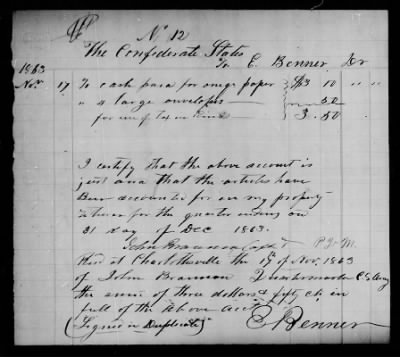 No 12
The Confederate States
To E. Benner Dr
1863
Nov. 17 To cash paid for paper $3 00 " "
" 4 large envelopes 50
for use of tax in kind 3.50
I certify that the above account is
just and that the articles have
Been accounted for on my property
return for the quarter ending on
31 day of Dec 1863.
John Brannan Capt
Recd at Charlottesville the 17 of Nov. 1863
of John Brannan Quartermaster C.S. Army
the sum of three dollars & fifty cts in
full of the above acct
(Signed in Duplicate) E Benner